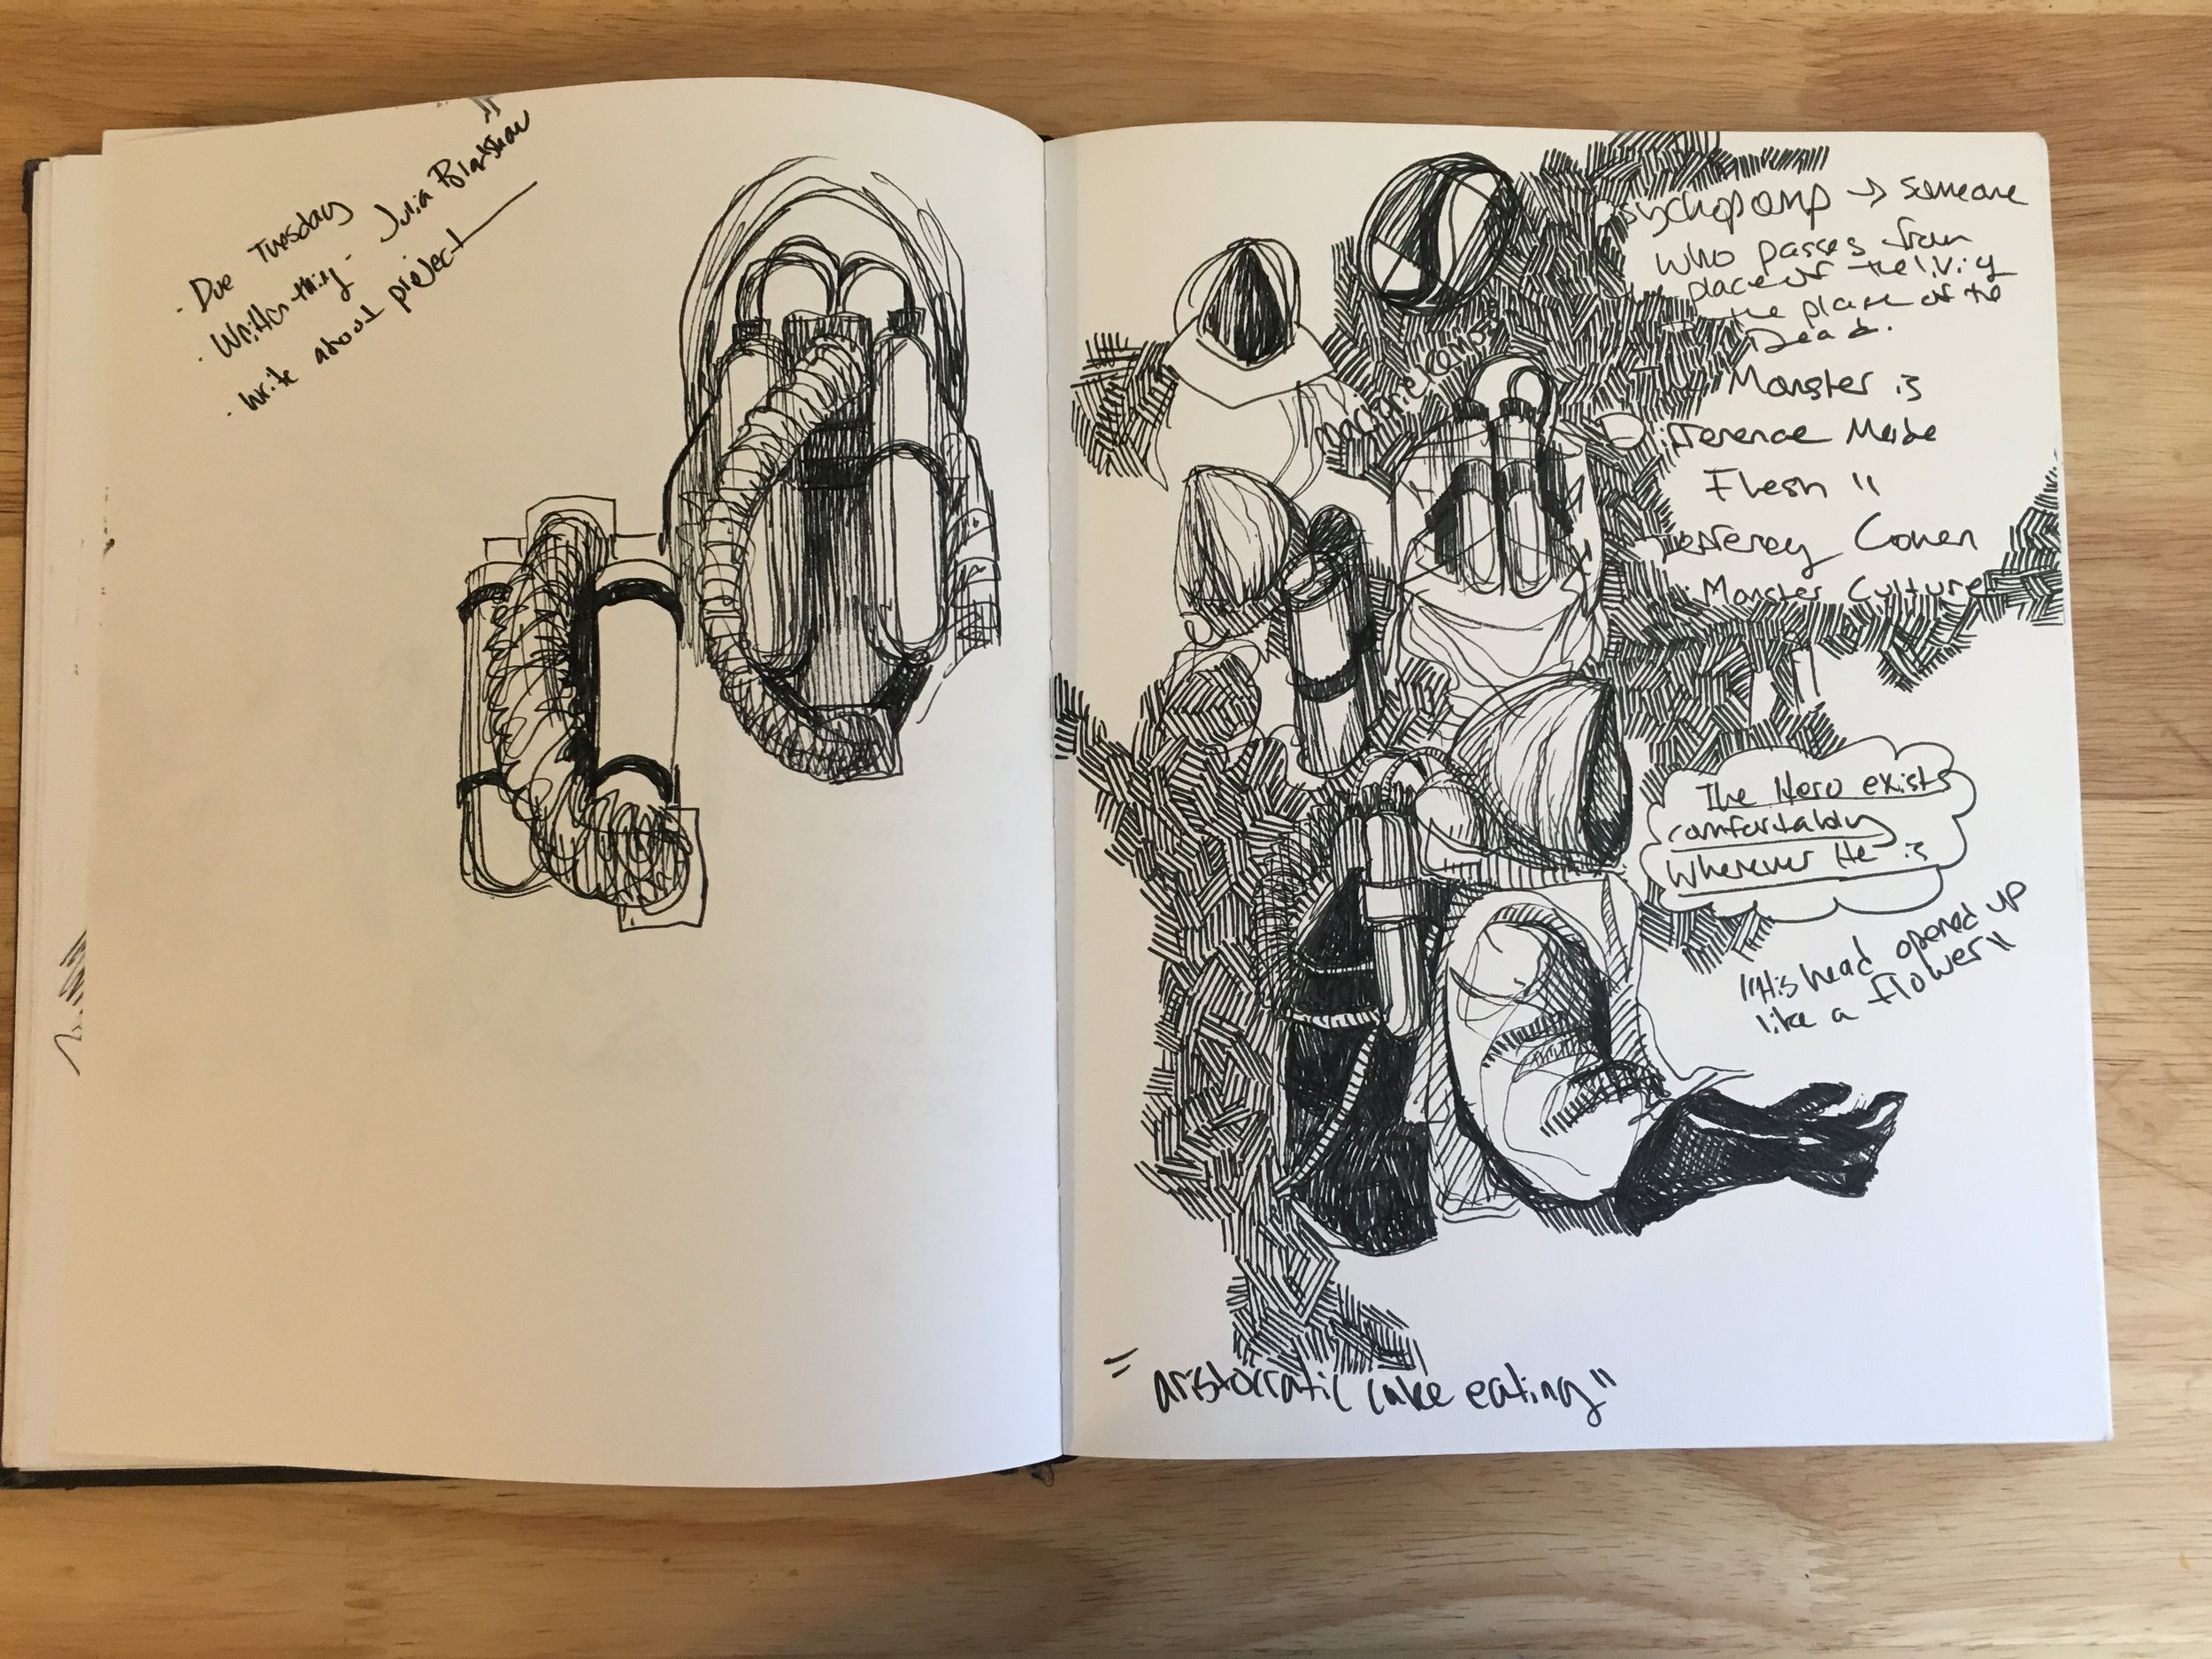 · Due Tuesday
· Written thing - Julia
· Write about project
Psychopomp → Someone
who passes from
place of the living
the place of the
Dead.
Monster is
ifference Made
Flesh "
Jefferey Cohen
Monster Culture
The Hero exists
comfortably
Wherever He is
"His head opened up
like a flower"
"aristocratic cake eating"